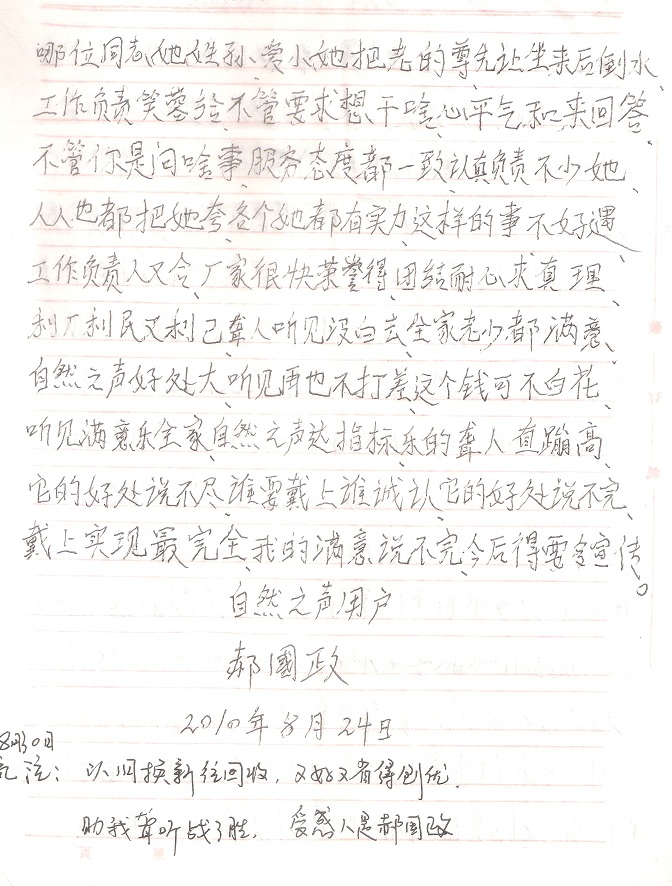 哪位同志她姓孙、爱小她把老的尊先让坐来后倒水、
工作负责笑蓉给、不管要求想干啥、心平气和来回答、
不管你是问啥事服务态度都一致认真负责不少她、
人人也都把她夸、各个她都有实力、这样的事不好遇、
工作负责人又合、厂家很快荣誉得、团结耐心求真理、
利厂利民又利己、聋人听见没白去、全家老少都满意、
自然之声好处大、听见再也不打差、这个钱可不白花、
听见满意乐全家、自然之声达指标、乐的聋人直蹦高、
它的好处说不尽、谁要戴上谁诚认、它的好处说不完、
戴上实现最完全、我的满意说不完、今后得要多宣传。
自然之声用户
郝國政
2010年8月24日
8月30日
记注： 以旧换新往回收，又好又省得到优。
助我聋听战了胜， 受感人是郝国政